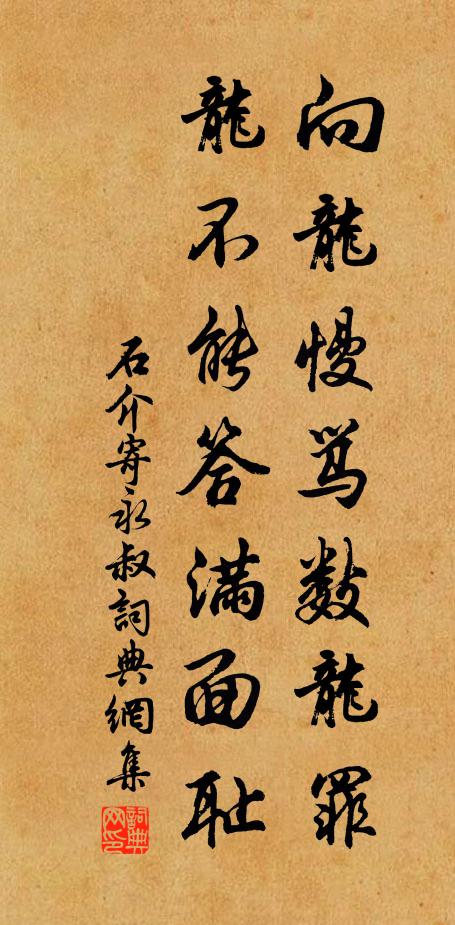 向龍慢罵數龍罪
龍不能答滿面耻
石介寄永叔詞典網集
詞典
网印